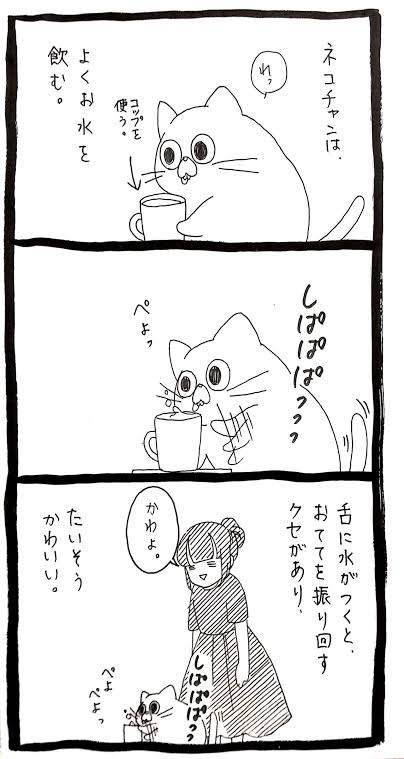 ネコチャンは、
れっ
よくお水を
飲む。
コップを
使う。
しぱぱぱっっっ
ぺよっ
舌に水がつくと、
おててを振り回す
クセがあり、
かわよ。
たいそう
かわいい。
しぱぱぱっっ
ぺよ
ぺよっ